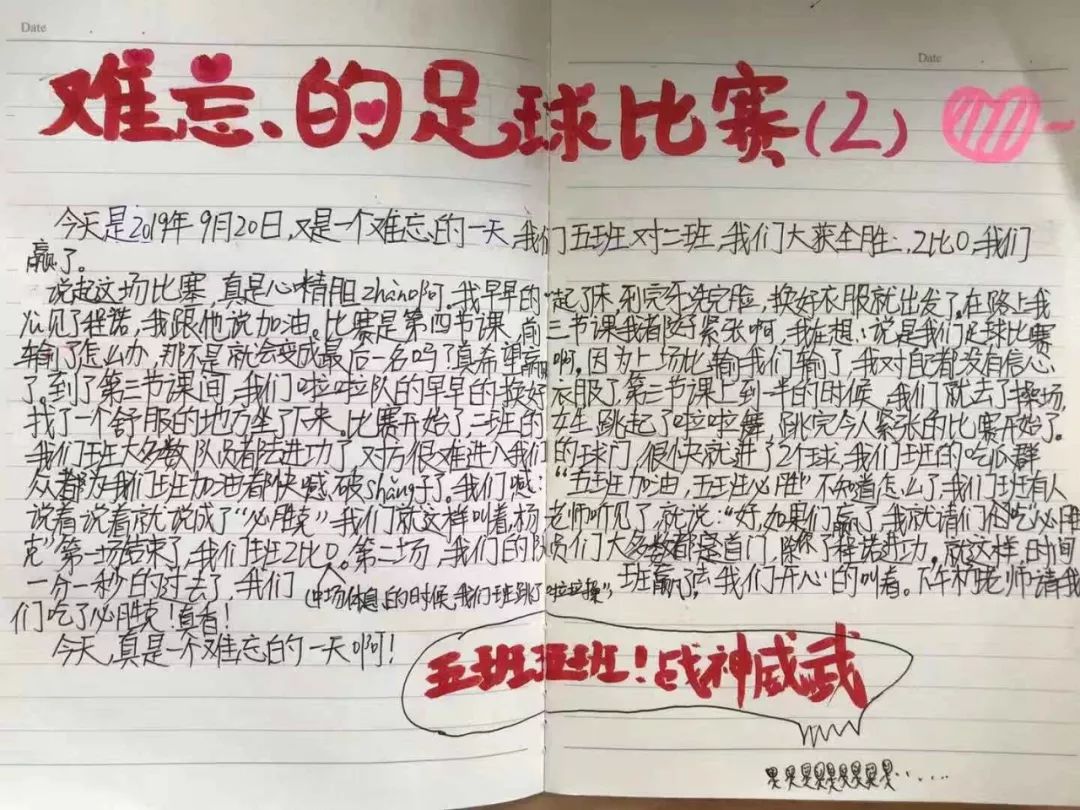 Date
Date
难忘的足球比赛(2)
今天是2019年9月20日,又是一个难忘的一天,我们五班对二班,我们大获全胜,2比0,我们
赢了。
说起这场比赛,真是心精胆zhàn啊。我早早的起了床,刷完牙洗完脸,换好衣服就出发了。在路上我
发见了程诺,我跟他说加油。比赛是第四节课,前三节课我都好紧张啊,我在想:说是我们足球比赛
输了怎么办,那不是就会变成最后一名吗?真希望赢啊。因为上场比输我们输了,我对自己都没有信心
了。到了第三节课间,我们啦啦队的早早的换好衣服了。第三节课上到一半的时候,我们就去了操场,
找了一个舒服的地方坐了下来。比赛开始了,二班的女生跳起了啦啦舞,跳完令人紧张的比赛开始了。
我们班大多数队员都去进功了,对方很难进入我们的球门,很快就进了2个球,我们班的吃瓜群
众都为我们班加油都快喊破shǎng子了。我们喊:“五班加油,五班必胜”不知道怎么了,我们班有人
说着说着就说成了“必胜克”我们就这样叫着,杨老师听见了,就说:“好,如果们赢了,我就请们吃“必胜
克”第一场结束了,我们班2比0。第二场,我们的队员们大多数都是首门,除了程诺进功。就这样,时间
一分一秒的过去了,我们班赢了,我们开心的叫着。下午杨老师请我
(中场休息的时候,我们班跳了啦啦操)
们吃了必胜克!真香!
今天,真是一个难忘的一天啊!
五班五班!战神威武